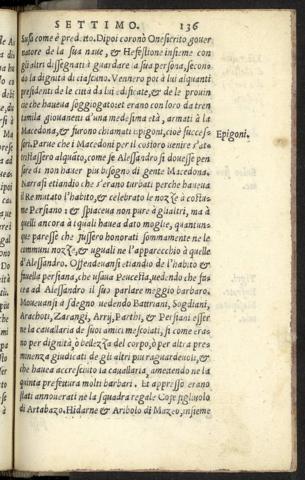 SETTIMO. 136
Susa come è predetto. Dipoi coronò Onesicrito, gouer
natore de la sua naue, & Hefestione insieme con
gli altri dissegnati à guardare la sua persona, secon-
do la dignità di ciascuno. Vennero poi à lui alquanti
presidenti de le città da lui edificate, & de le prouin
cie che haueua soggiogate: et erano con loro da tren
tamila giouanetti d'una medesima età, armati à la
Macedona, & furono chiamati Epigoni, cioè succes-
sori. Parue che i Macedoni per il costoro uenire s'at-
tristassero alquãto, come se Alessandro si douesse pen
sare di non hauer piu bisogno di gente Macedona.
Narrasi etiandio che s'erano turbati perche haueua
il Re mutato l'habito, & celebrato le nozze à costu-
me Persiano: & spiaceua non pure à gli altri, ma à
quelli ancora à i quali haueua dato moglie, quantun-
que paresse che fussero honorati sommamente ne le
communi nozze, & uguali ne l'apparecchio à quelle
d'Alessandro. Offendeuansi etiandio de l'habito &
fauella persiana, che usaua Peucesta, uedendo che fus
ca ad Alessandro il suo parlare meggio barbaro.
Moueuansi à sdegno uedendo Battriani, Sogdiani,
Arachoti, Zarangi, Arrij, Parthi, & Persiani esser
ne la cauallaria de suoi amici mescolati, si come erano
no per dignità, ò bellezza del corpo, ò per altra pre
minenza giudicati de gli altri piu raguardeuoli, &
che haueua accresciuto la cauallaria, amettendo ne la
quinta prefettura molti barbari. Et appresso erano
stati annouerati ne la squadra regale Cofe figliuolo
di Artabazo. Hidarne & Aribolo di Mazeo, insieme
Epigoni.